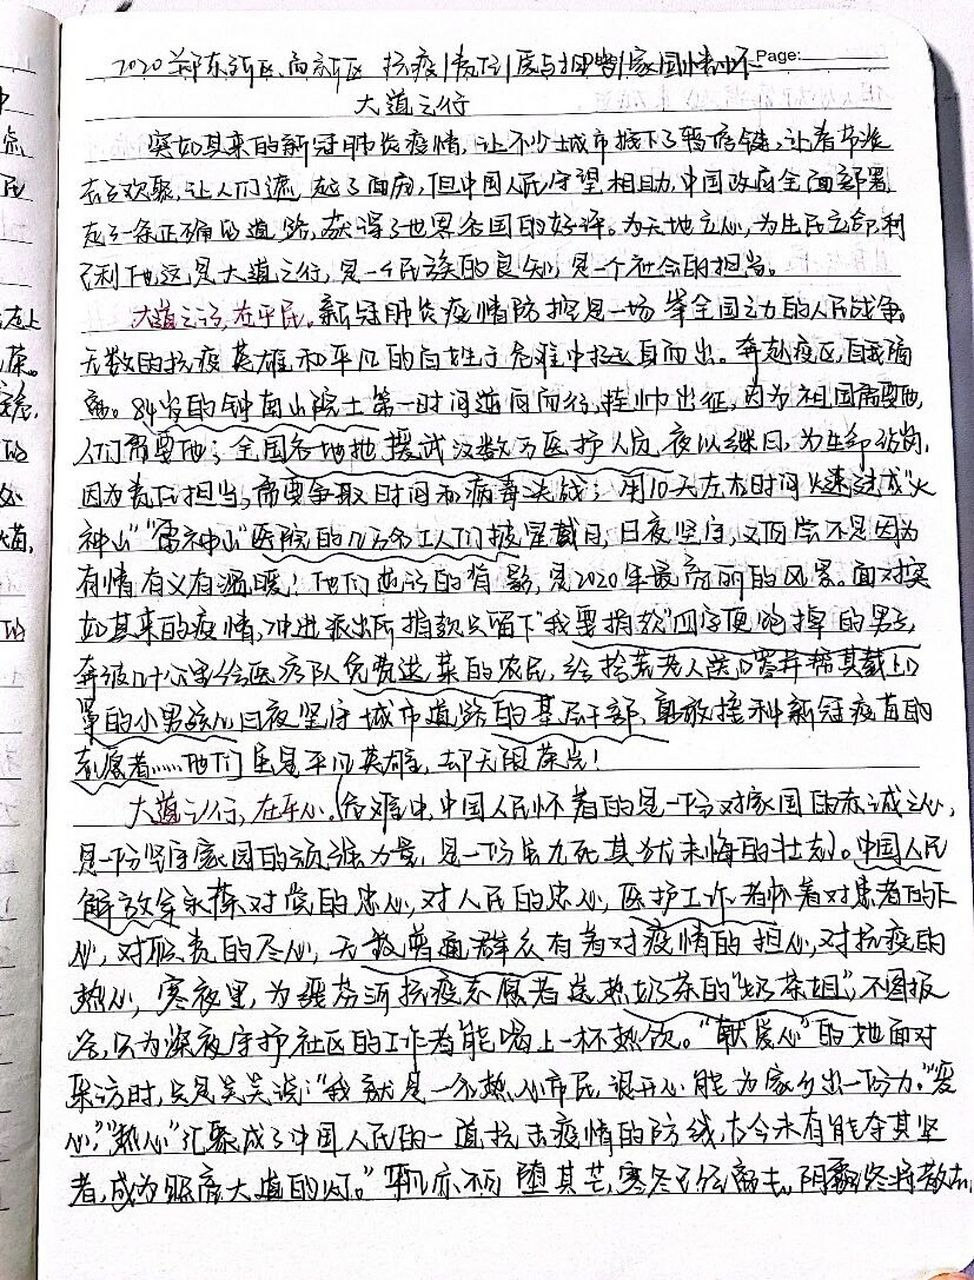 2020 郑东新区、高新区 抗疫/责任/医与担当/家国情怀 Page:
大道之行
突如其来的新冠肺炎疫情，让不少城市按下了暂停键，让春节难
去了欢聚，让人们遮起了面庞，但中国人民守望相助，中国政府全面部署，
走了一条正确的道路，获得了世界各国的好评。为天地立心，为生民立命，利
利他，这是大道之行，是一个民族的良知，是一个社会的担当。
大道之行，在乎民。新冠肺炎疫情防控是一场举全国之力的人民战争。
无数的抗疫英雄和平凡的百姓于危难中挺身而出。奔赴疫区，自我隔
离。84岁的钟南山院士第一时间逆向而行，挂帅出征，因为祖国需要他，
人们需要他；全国各地援武汉数万医护人员夜以继日，为生命站岗，
因为责任担当，需要争取时间和病毒决战；用10天左右时间火速建成"火
神山""雷神山"医院的几万名工人们披星戴月，日夜坚守，又何尝不是因为
有情有义有温暖！他们逆行的背影，是2020年最亮丽的风景。面对突
如其来的疫情，冲进派出所捐款只留下"我要捐款"四字便跑掉的男子，
奔波几十公里给医疗队免费送菜的农民，给拾荒老人送口罩并帮其戴上口
罩的小男孩儿，日夜坚守城市道路的基层干部，勇敢接种新冠疫苗的
志愿者……他们虽是平凡英雄，却无限荣光！
大道之行，在乎心。危难中，中国人民怀着的是一份对家国的赤诚之心，
是一份坚守家园的顽强力量，是一份虽九死其犹未悔的壮烈。中国人民
解放军永葆对党的忠心，对人民的忠心，医护工作者怀着对患者的仁
心，对职责的尽心，无数普通群众有着对疫情的担心，对抗疫的
热心，寒夜里，为张芬河抗疫志愿者送热奶茶的"奶茶姐"，不图报
答，只为深夜守护社区的工作者能喝上一杯热饮。"献爱心"的她面对
采访时，只是笑笑说："我就是一个热心市民，很开心能为家乡出一份力。"爱
心""热心"汇聚成了中国人民的一道抗击疫情的防线，古今未有能夺其坚
者，成为照亮大道的灯。" 亦不可堕其芒，寒冬已经离去，阴翳终将散去，